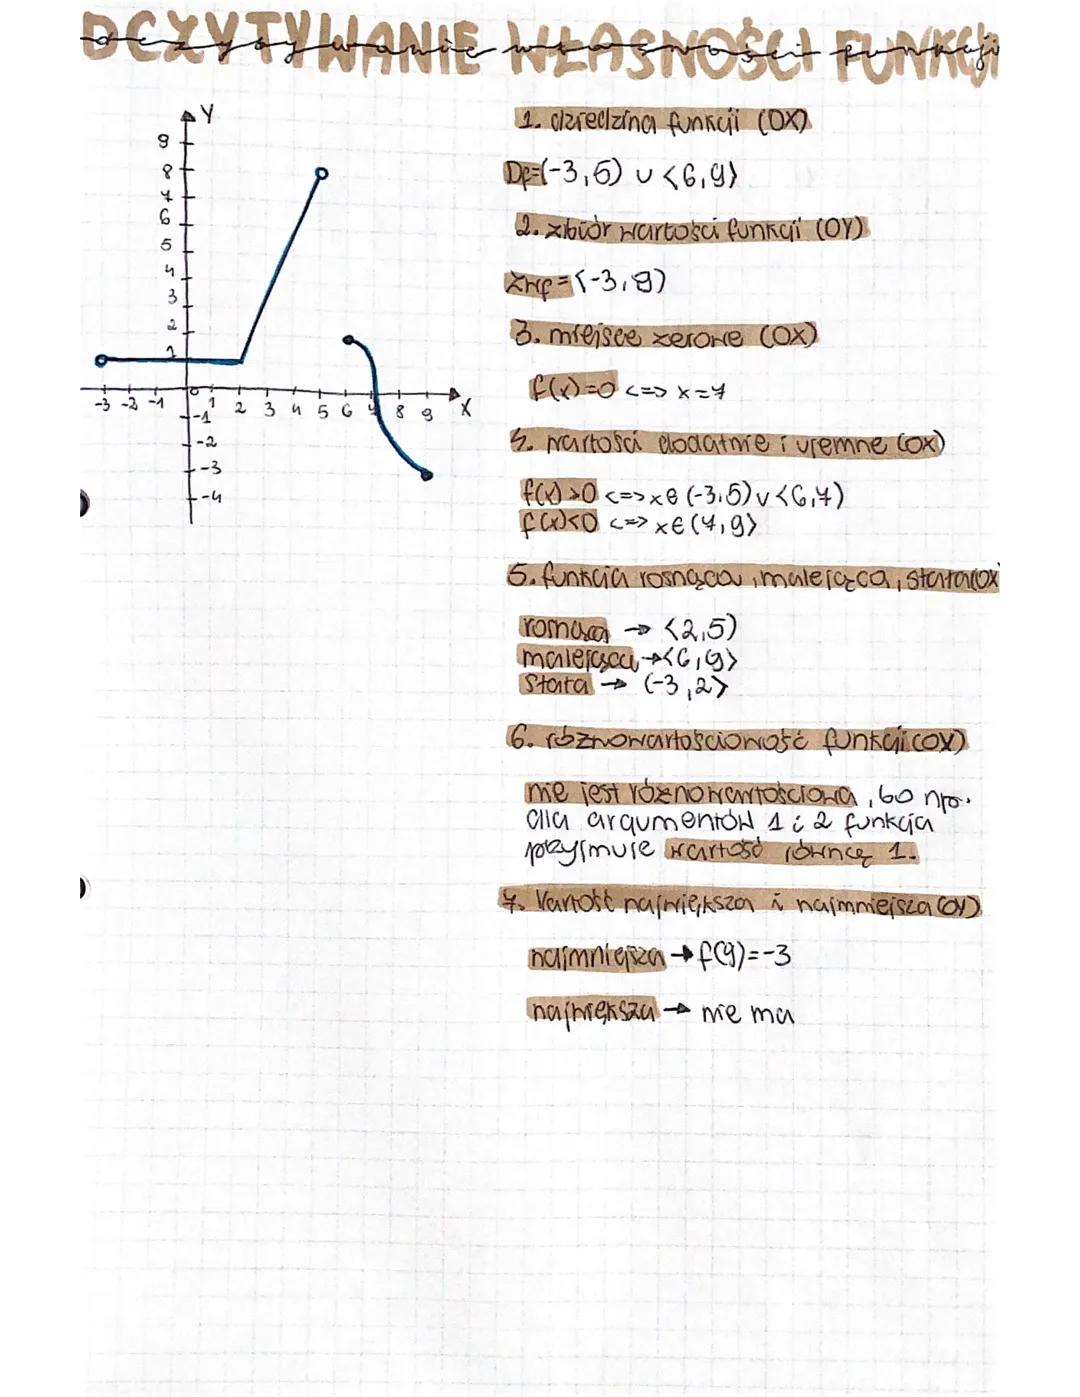 OCZYTYWANIE WŁASNOŚCI FUNKCJI
Y
9
8
7
6
5
4
3
2
1
-3 -2 -1 0 1 2 3 4 5 6 7 8 9 X
-1
-2
-3
-4
1. dziedzina funkcji (OX)
Df=(-3,5) ∪ <6,9>
2. zbiór wartości funkcji (OY)
ZWf=<-3,8)
3. miejsce zerowe (OX)
f(x)=0 <=> x=7
4. wartości dodatnie i ujemne (OX)
f(x)>0 <=> x∈(-3,5)∪<6,7)
f(x)<0 <=> x∈(7,9>
5. funkcja rosnąca, malejąca, stała(OX
rosnąca → <2,5)
malejąca →<6,9>
stała → (-3,2>
6. różnowartościowość funkcji(OX)
nie jest różnowartościowa, bo np.
dla argumentów 1 i 2 funkcja
przyjmuje wartość równą 1.
7. Wartość największa i najmniejsza(OY)
najmniejsza → f(9)=-3
największa → nie ma